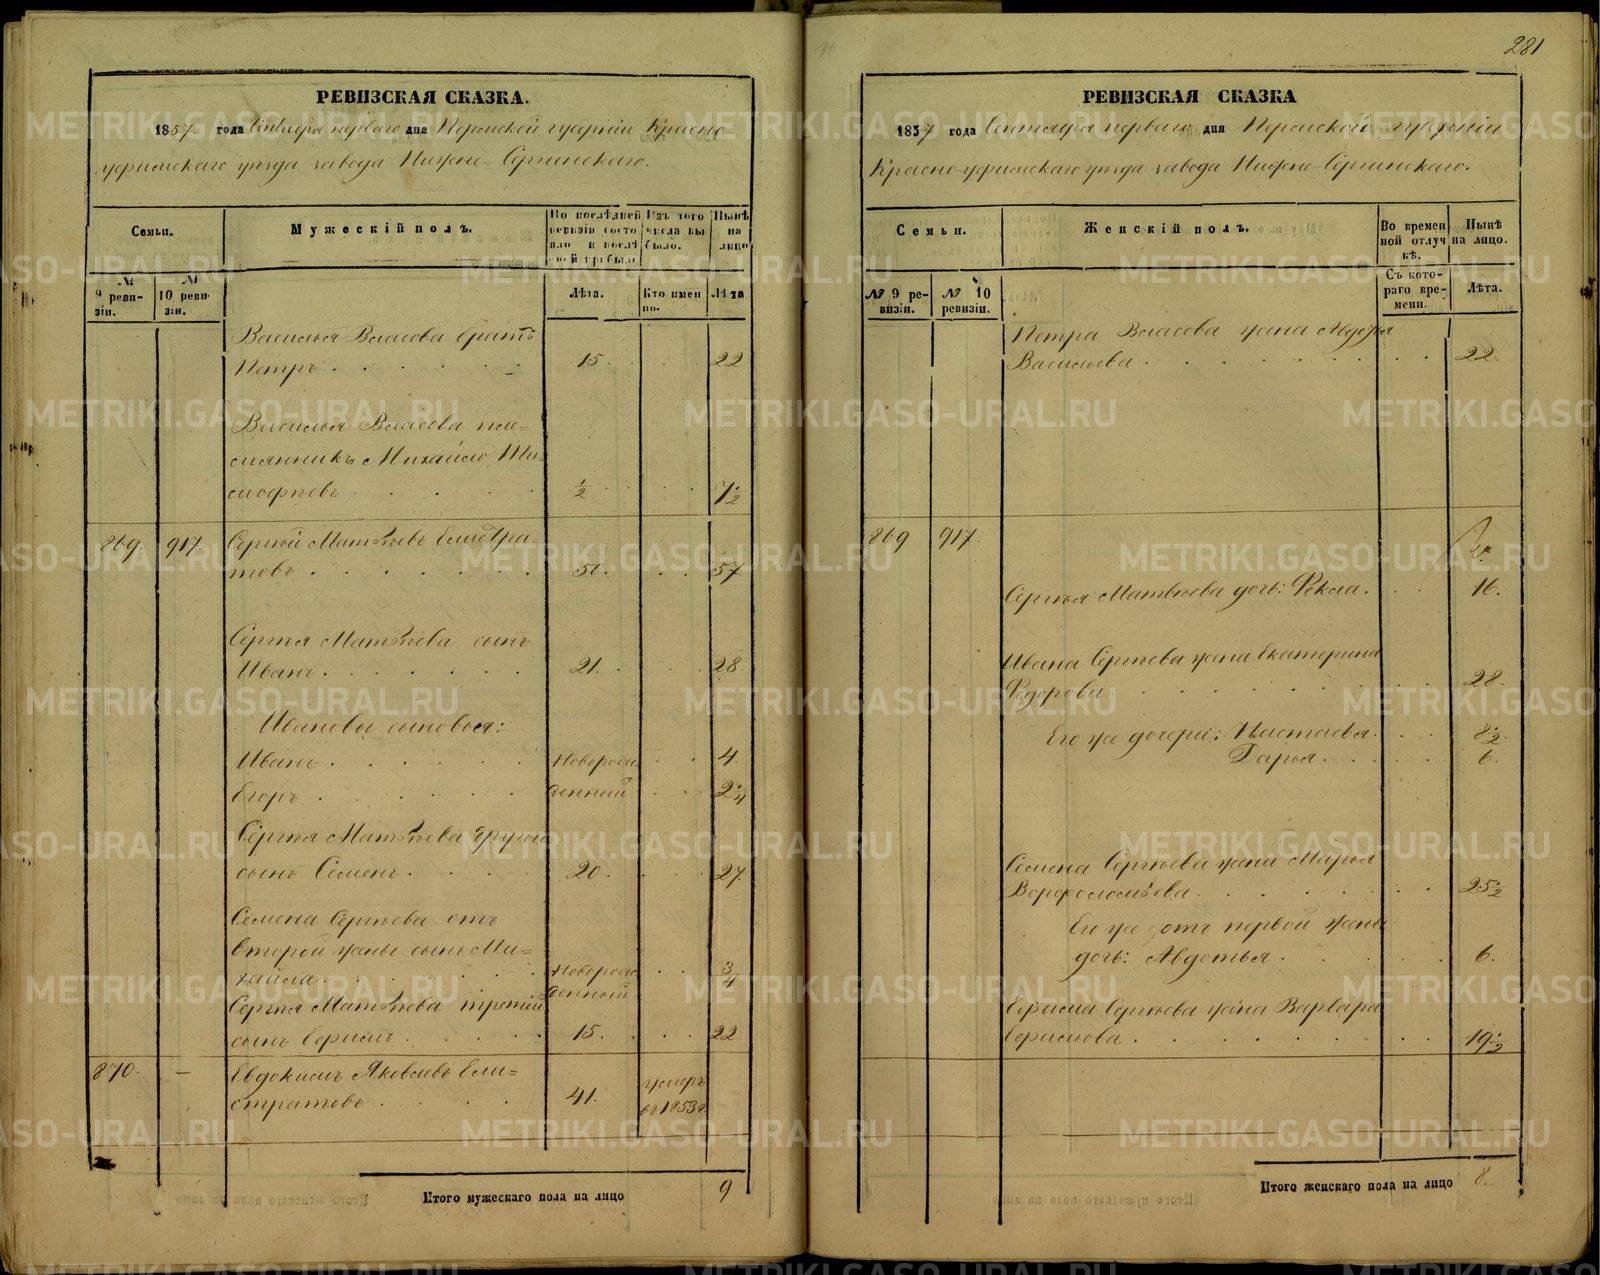 РЕВИЗСКАЯ СКАЗКА.
1857 года Сентября перваго дня Пермской губернiи Красно
уфимскаго уѣзда завода Нижне-Сергинскаго.
Семьи.
Мужескiй полъ.
По послѣдней ревизiи состояло и послѣ оной прибыло
Изъ того числа выбыло.
Нынѣ на лицо
№ 9 ревизiи.
№ 10 ревизiи.
Лѣта.
Кто именно.
Лѣта
Василья Власова братъ
Петръ 15. 22
Василья Власова пле=
мянникъ Михайло Ти=
мофѣевъ 1/2 7 1/2
869. 917. Сергѣй Матвѣевъ Елистра=
товъ 50. 57
Сергѣя Матвѣева сынъ
Иванъ 21. 28.
Ивановы сыновья:
Иванъ новорож 4.
Егоръ денный 2 1/4
Сергѣя Матвѣева другой
сынъ Семенъ 20. 27.
Семена Сергѣева отъ
второй жены сынъ Ми=
хайла новорож 3/4
денный
Сергѣя Матвѣева третiй
сынъ Ефимъ 15. 22
870. — Евдокимъ Яковлевъ Ели=
стратовъ 41. умеръ
въ 1853 г.
Итого мужескаго пола на лицо 9
281
РЕВИЗСКАЯ СКАЗКА
1857 года Сентября перваго дня Пермской губернiи
Красно-уфимскаго уѣзда завода Нижне-Сергинскаго.
Семьи.
Женскiй полъ.
Во временной отлучкѣ.
Нынѣ на лицо.
№ 9 ревизiи.
№ 10 ревизiи.
Съ котораго времени.
Лѣта.
Петра Власова жена Авдотья
Васильева 22.
869 917.
Сергѣя Матвѣева дочь: Фекла. 16.
Ивана Сергѣева жена Екатерина
Федорова 28.
Его же дочери: Настасья 8 1/2.
Дарья 6.
Семена Сергѣева жена Марья
Варфоломѣева 25 1/2
Его же отъ первой жены
дочь: Авдотья 6.
Ефима Сергѣева жена Варвара
Ефимова 19 1/2
Итого женскаго пола на лицо 8.
METRIKI.GASO-URAL.RU